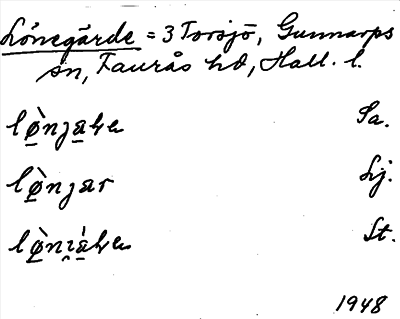 Lönegärde = 3 Torsjö, Gunnarps
sn, Faurås hd, Hall. l.
lø̀njaka Sa.
lø̀njar Lj.
St.
1948